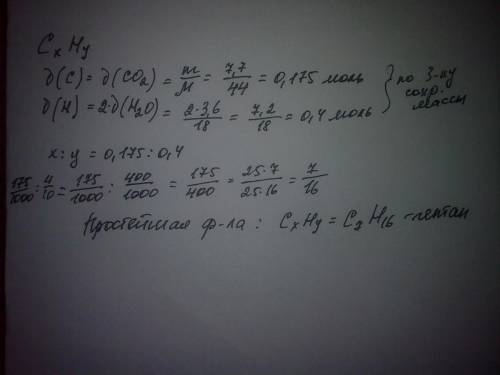 CxHy
ν(C) = ν(CO2) = m/M = 7,7/44 = 0,175 моль
ν(H) = 2·ν(H2O) = 2·3,6/18 = 7,2/18 = 0,4 моль } по З-ну сохр. массы
x : y = 0,175 : 0,4
175/1000 : 4/10 = 175/1000 : 400/1000 = 175/400 = 25·7/25·16 = 7/16
Простейшая ф-ла : CxHy = C7H16 - гептан